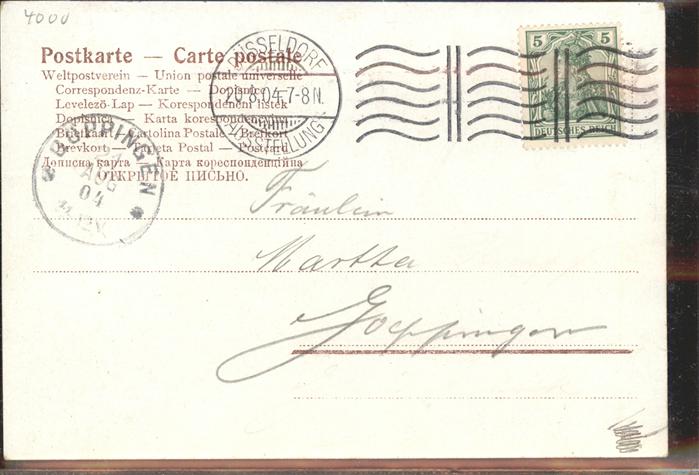 4000
Postkarte — Carte postale
Weltpostverein — Union postale universelle
Correspondenz-Karte — Postkaart
Levelező-Lap — Korespondenční lístek
Dopisnica — Karta korespondencyjna
Brefkort
Brevkort — Tarjeta Postal — Postcard
Дописна карта — Карта кореспонденційна
ОТКРЫТОЕ ПИСЬМО.
DÜSSELDORF
28.8.04.7-8N.
AUSSTELLUNG
5 5
DEUTSCHES REICH
AUG
04
Fräulein
Martha
Goeppingen